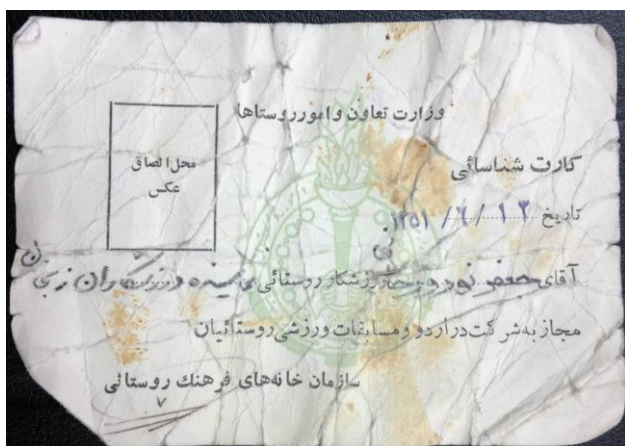 وزارت تعاون و امور روستاها
محل الصاق
عکس
کارت شناسائی
تاریخ ۱۳ / ۶ / ۱۳۵۱
آقای جعفر ورزشکار روستائی ورزشکاران زنجان
مجاز به شرکت در اردو و مسابقات ورزشی روستائیان
سازمان خانه‌های فرهنگ روستائی